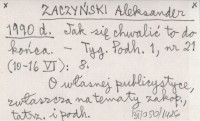 ZACZYŃSKI Aleksander
1990 d. Jak się chwalić to do
końca. – Tyg. Podh. 1, nr 21
(10-16 VI): 8.
O własnej publicystyce,
zwłaszcza na tematy zakop.,
tatrz. i podh.